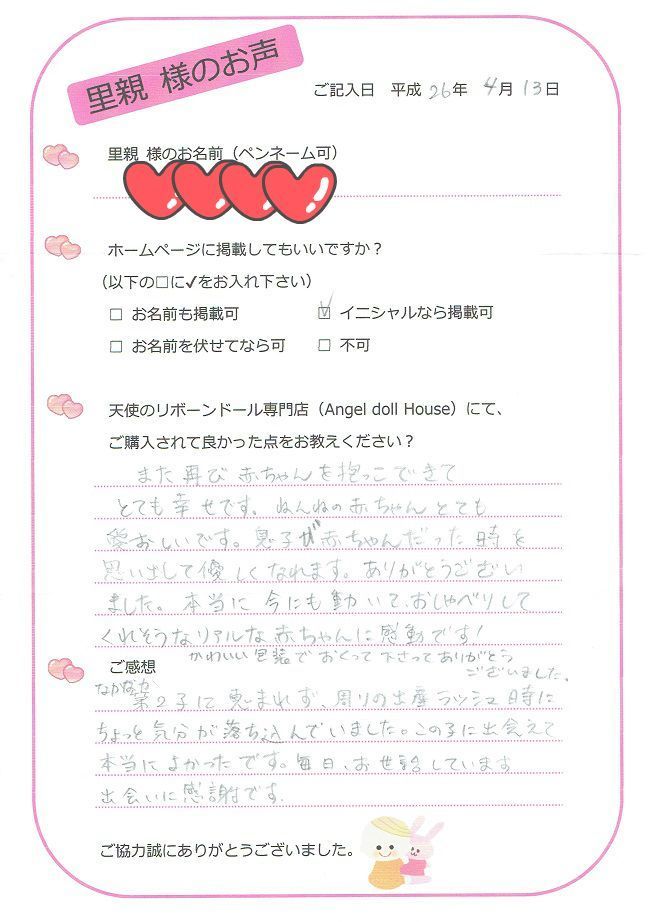 里親 様のお声
ご記入日 平成 26年 4月 13日
里親 様のお名前（ペンネーム可）
ホームページに掲載してもいいですか？
（以下の□に✓をお入れ下さい）
□ お名前も掲載可
☑ イニシャルなら掲載可
□ お名前を伏せてなら可
□ 不可
天使のリボーンドール専門店（Angel doll House）にて、
ご購入されて良かった点をお教えください？
また再び赤ちゃんを抱っこできて
とても幸せです。ねんねの赤ちゃんとても
愛おしいです。息子が赤ちゃんだった時を
思い出して優しくなれます。ありがとうござい
ました。本当に今にも動いて、おしゃべりして
くれそうなリアルな赤ちゃんに感動です！
かわいい包装でおくって下さってありがとう
ございました。
ご感想
なかなか第2子に恵まれず、周りの出産ラッシュ時に
ちょっと気分が落ち込んでいました。この子に出会えて
本当によかったです。毎日、お世話しています
出会いに感謝です。
ご協力誠にありがとうございました。